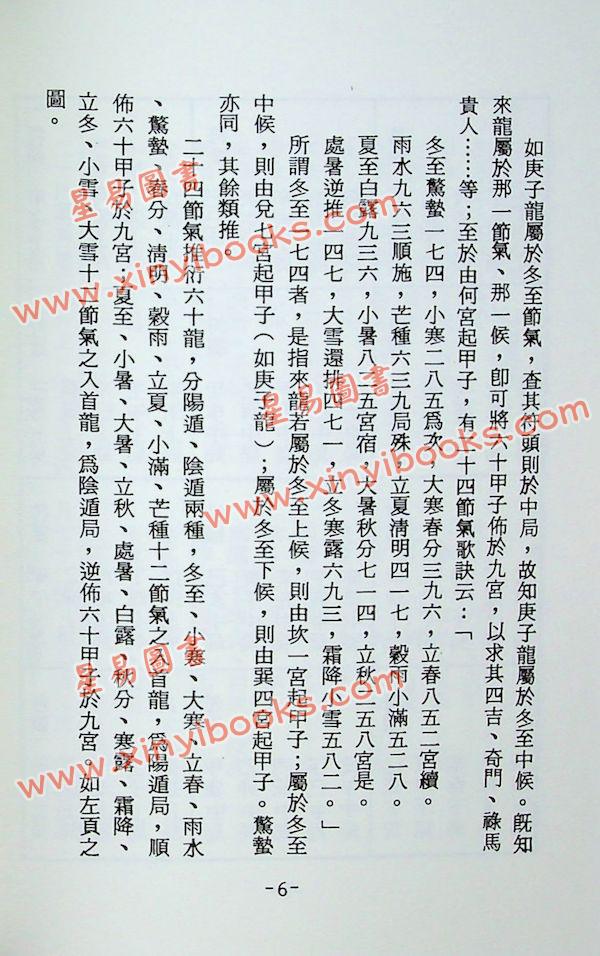 如庚子龍屬於冬至節氣，查其符頭則於中局，故知庚子龍屬於冬至中候。旣知
來龍屬於那一節氣、那一候，卽可將六十甲子佈於九宮，以求其四吉、奇門、祿馬
貴人……等；至於由何宮起甲子，有二十四節氣歌訣云：「
冬至驚蟄一七四，小寒二八五爲次，大寒春分三九六，立春八五二宮續。
雨水九六三順施，芒種六三九局殊，立夏清明四一七，穀雨小滿五二八。
夏至白露九三六，小暑八二五宮宿，大暑秋分七一四，立秋二五八宮是。
處暑逆推一四七，大雪還推四七一，立冬寒露六九三，霜降小雪五八二。」
所謂冬至一七四者，是指來龍若屬於冬至上候，則由坎一宮起甲子；屬於冬至
中候，則由兌七宮起甲子（如庚子龍）；屬於冬至下候，則由巽四宮起甲子。驚蟄
亦同，其餘類推。
二十四節氣推衍六十龍，分陽遁、陰遁兩種，冬至、小寒、大寒、立春、雨水
、驚蟄、春分、淸明、穀雨、立夏、小滿、芒種十二節氣之入首龍，爲陽遁局，順
佈六十甲子於九宮；夏至、小暑、大暑、立秋、處暑、白露、秋分、寒露、霜降、
立冬、小雪、大雪十二節氣之入首龍，爲陰遁局，逆佈六十甲子於九宮。如左頁之
圖。
-6-
星易圖書
www.xinyibooks.com
星易圖書
www.xinyibooks.com
星易圖書
www.xinyibooks.com